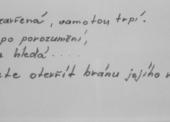 zavřená, samotou trpí.
po porozumění,
hledá ....
ete otevřít bránu jejího